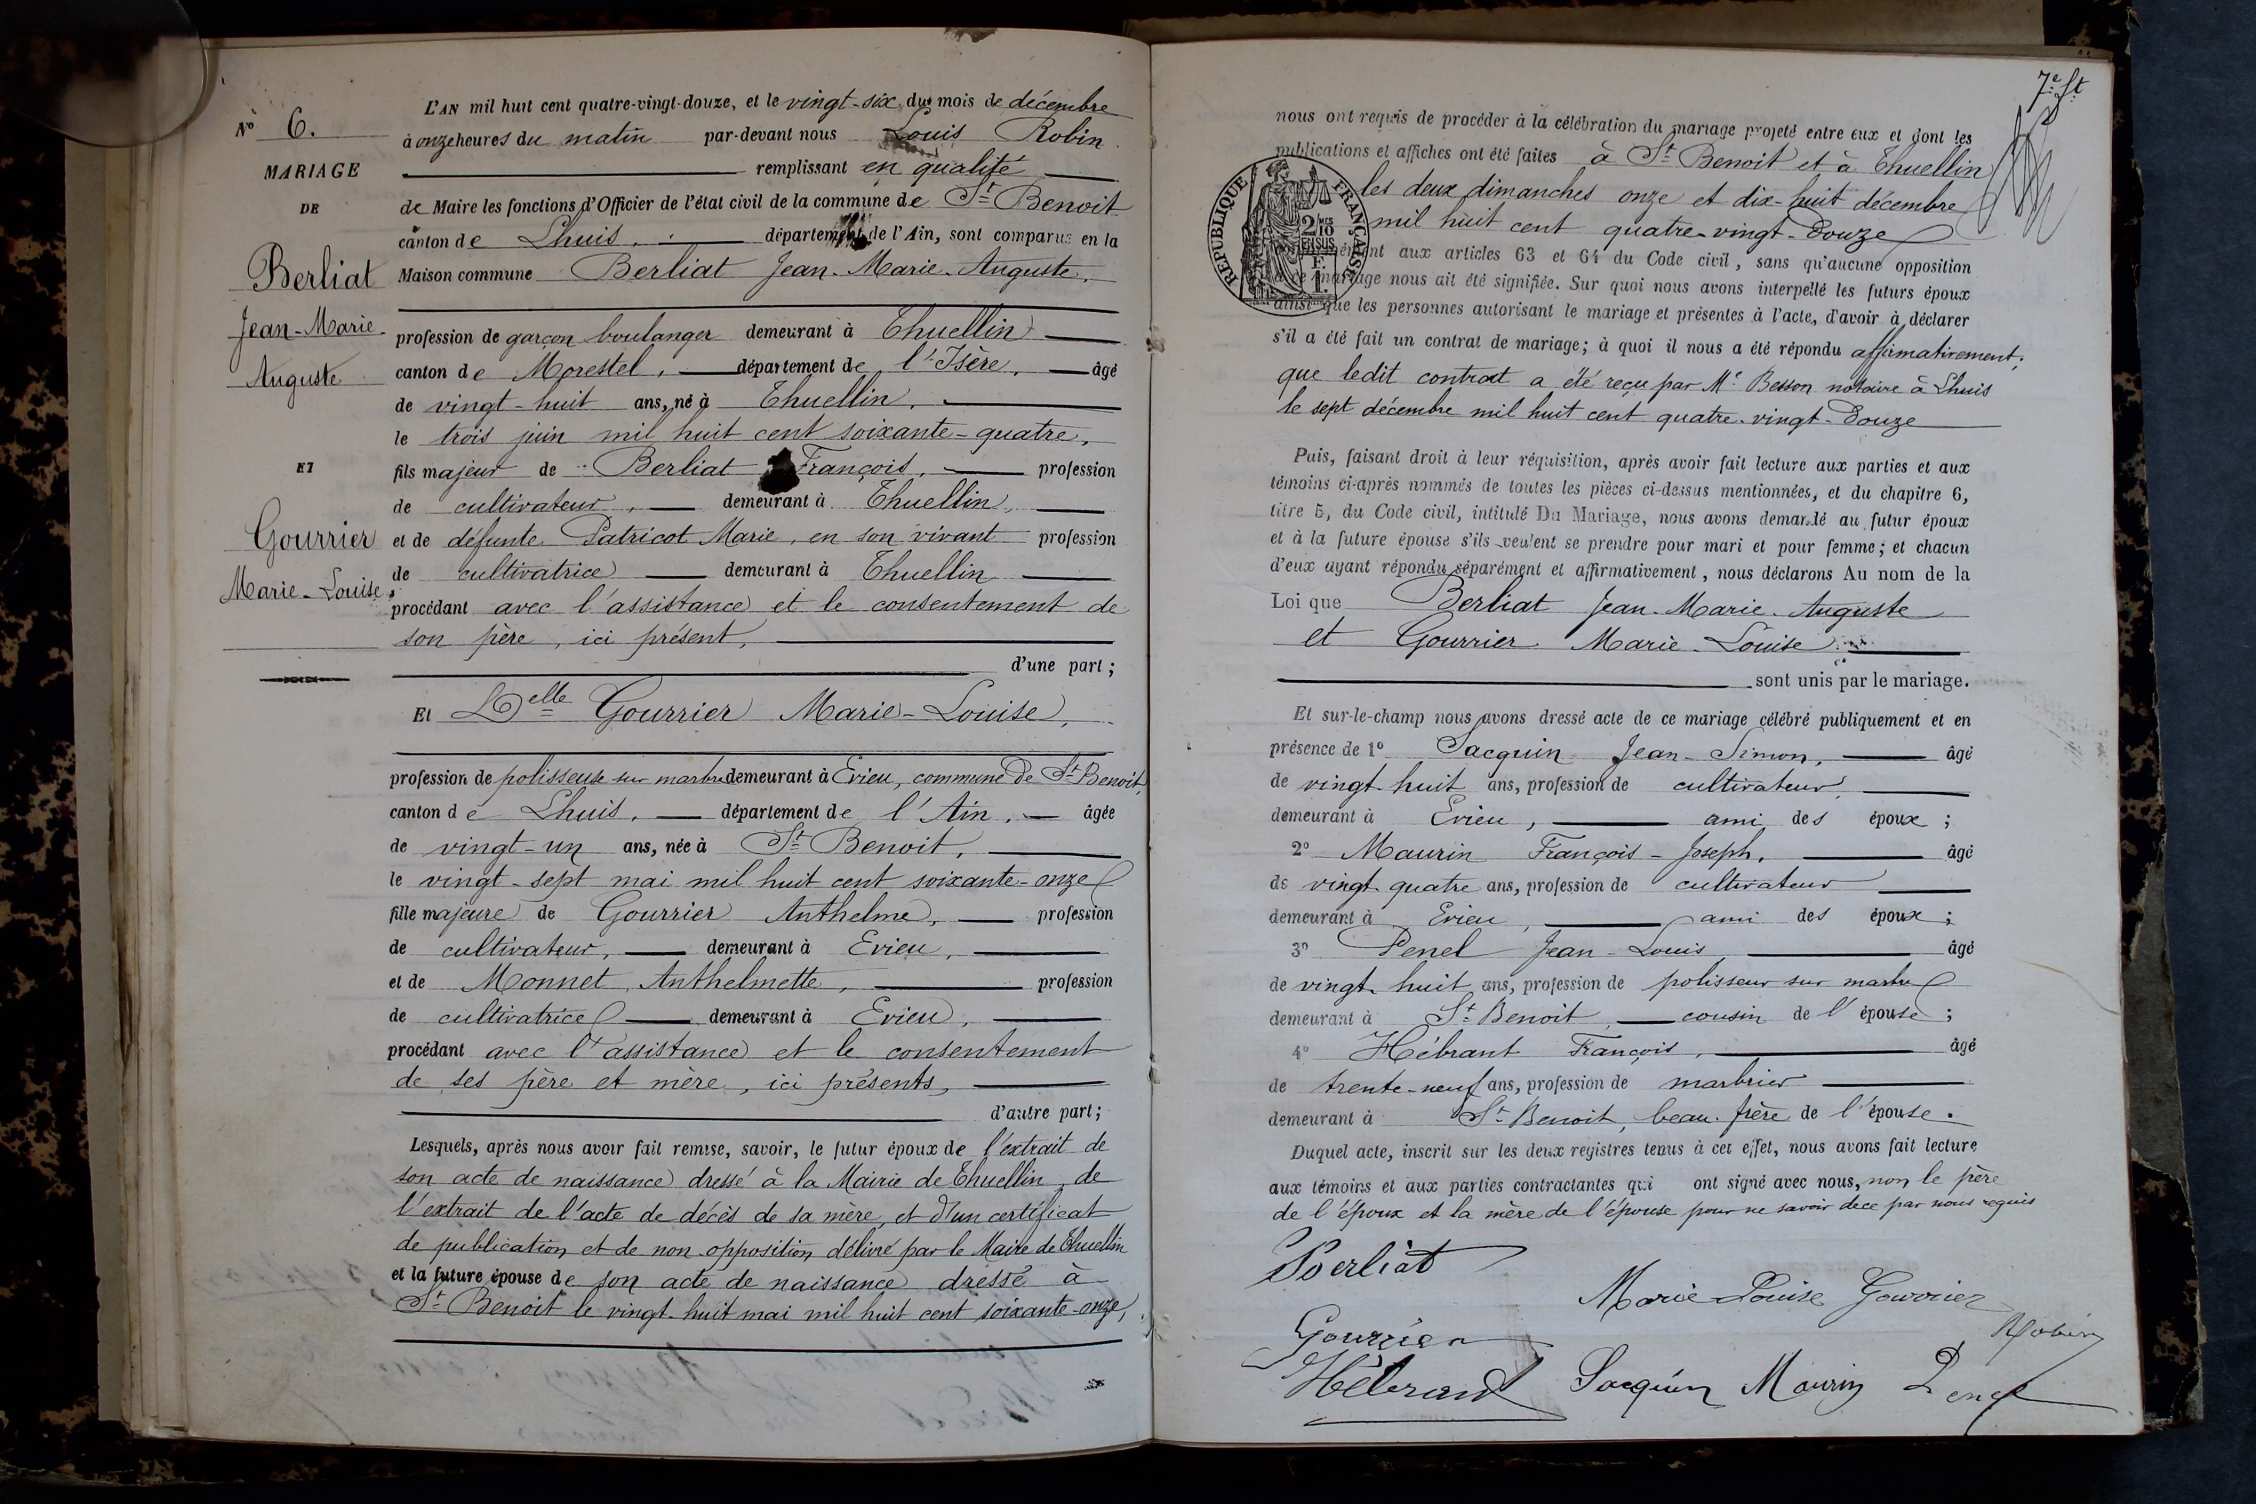 L'AN mil huit cent quatre-vingt-douze, et le vingt-six du mois de décembre
N° 6.
à onze heures du matin par-devant nous Louis Robin
MARIAGE
remplissant en qualité
DE
de Maire les fonctions d'Officier de l'état civil de la commune de St Benoit
canton de Lhuis, département de l'Ain, sont comparus en la
Berliat
Maison commune Berliat Jean-Marie-Auguste,
Jean-Marie-
profession de garçon boulanger demeurant à Thuellin
Auguste
canton de Morestel, département de l'Isère, âgé
de vingt-huit ans, né à Thuellin,
le trois juin mil huit cent soixante-quatre,
ET
fils majeur de Berliat François, profession
de cultivateur, demeurant à Thuellin,
Gourrier
et de défunte Patricot Marie, en son vivant profession
de cultivatrice demeurant à Thuellin
Marie-Louise
procédant avec l'assistance et le consentement de
son père, ici présent,
d'une part;
Et Delle Gourrier Marie-Louise,
profession de polisseuse sur marbre demeurant à Evieu, commune de St Benoit,
canton de Lhuis, département de l'Ain, âgée
de vingt-un ans, née à St Benoit,
le vingt-sept mai mil huit cent soixante-onze
fille majeure de Gourrier Anthelme, profession
de cultivateur, demeurant à Evieu,
et de Monnet Anthelmette, profession
de cultivatrice demeurant à Evieu,
procédant avec l'assistance et le consentement
de ses père et mère, ici présents,
d'autre part;
Lesquels, après nous avoir fait remise, savoir, le futur époux de l'extrait de
son acte de naissance dressé à la Mairie de Thuellin, de
l'extrait de l'acte de décès de sa mère, et d'un certificat
de publication et de non-opposition délivré par le Maire de Thuellin
et la future épouse de son acte de naissance dressé à
St Benoit le vingt-huit mai mil huit cent soixante-onze,
7e ft
nous ont requis de procéder à la célébration du mariage projeté entre eux et dont les
publications et affiches ont été faites à St Benoit et à Thuellin
les deux dimanches onze et dix-huit décembre
mil huit cent quatre-vingt-douze
REPUBLIQUE FRANÇAISE
2/10 EN SUS
aux articles 63 et 64 du Code civil, sans qu'aucune opposition
mariage nous ait été signifiée. Sur quoi nous avons interpellé les futurs époux
ainsi que les personnes autorisant le mariage et présentes à l'acte, d'avoir à déclarer
s'il a été fait un contrat de mariage; à quoi il nous a été répondu affirmativement;
que ledit contrat a été reçu par Me Besson notaire à Lhuis
le sept décembre mil huit cent quatre-vingt-douze
Puis, faisant droit à leur réquisition, après avoir fait lecture aux parties et aux
témoins ci-après nommés de toutes les pièces ci-dessus mentionnées, et du chapitre 6,
titre 5, du Code civil, intitulé Du Mariage, nous avons demandé au futur époux
et à la future épouse s'ils veulent se prendre pour mari et pour femme; et chacun
d'eux ayant répondu séparément et affirmativement, nous déclarons Au nom de la
Loi que Berliat Jean-Marie-Auguste
et Gourrier Marie-Louise
sont unis par le mariage.
Et sur-le-champ nous avons dressé acte de ce mariage célébré publiquement et en
présence de 1° Sacquin Jean-Simon, âgé
de vingt-huit ans, profession de cultivateur,
demeurant à Evieu, ami des époux;
2° Maurin François-Joseph, âgé
de vingt-quatre ans, profession de cultivateur
demeurant à Evieu, ami des époux;
3° Penel Jean-Louis âgé
de vingt-huit ans, profession de polisseur sur marbre
demeurant à St Benoit, cousin de l'épouse;
4° Hébrant François, âgé
de trente-neuf ans, profession de marbrier
demeurant à St Benoit, beau-frère de l'épouse.
Duquel acte, inscrit sur les deux registres tenus à cet effet, nous avons fait lecture
aux témoins et aux parties contractantes qui ont signé avec nous, non le père
de l'époux et la mère de l'épouse pour ne savoir de ce par nous requis
Berliat
Marie Louise Gourrier
Robin
Gourrier
Hébrant Sacquin Maurin Penel